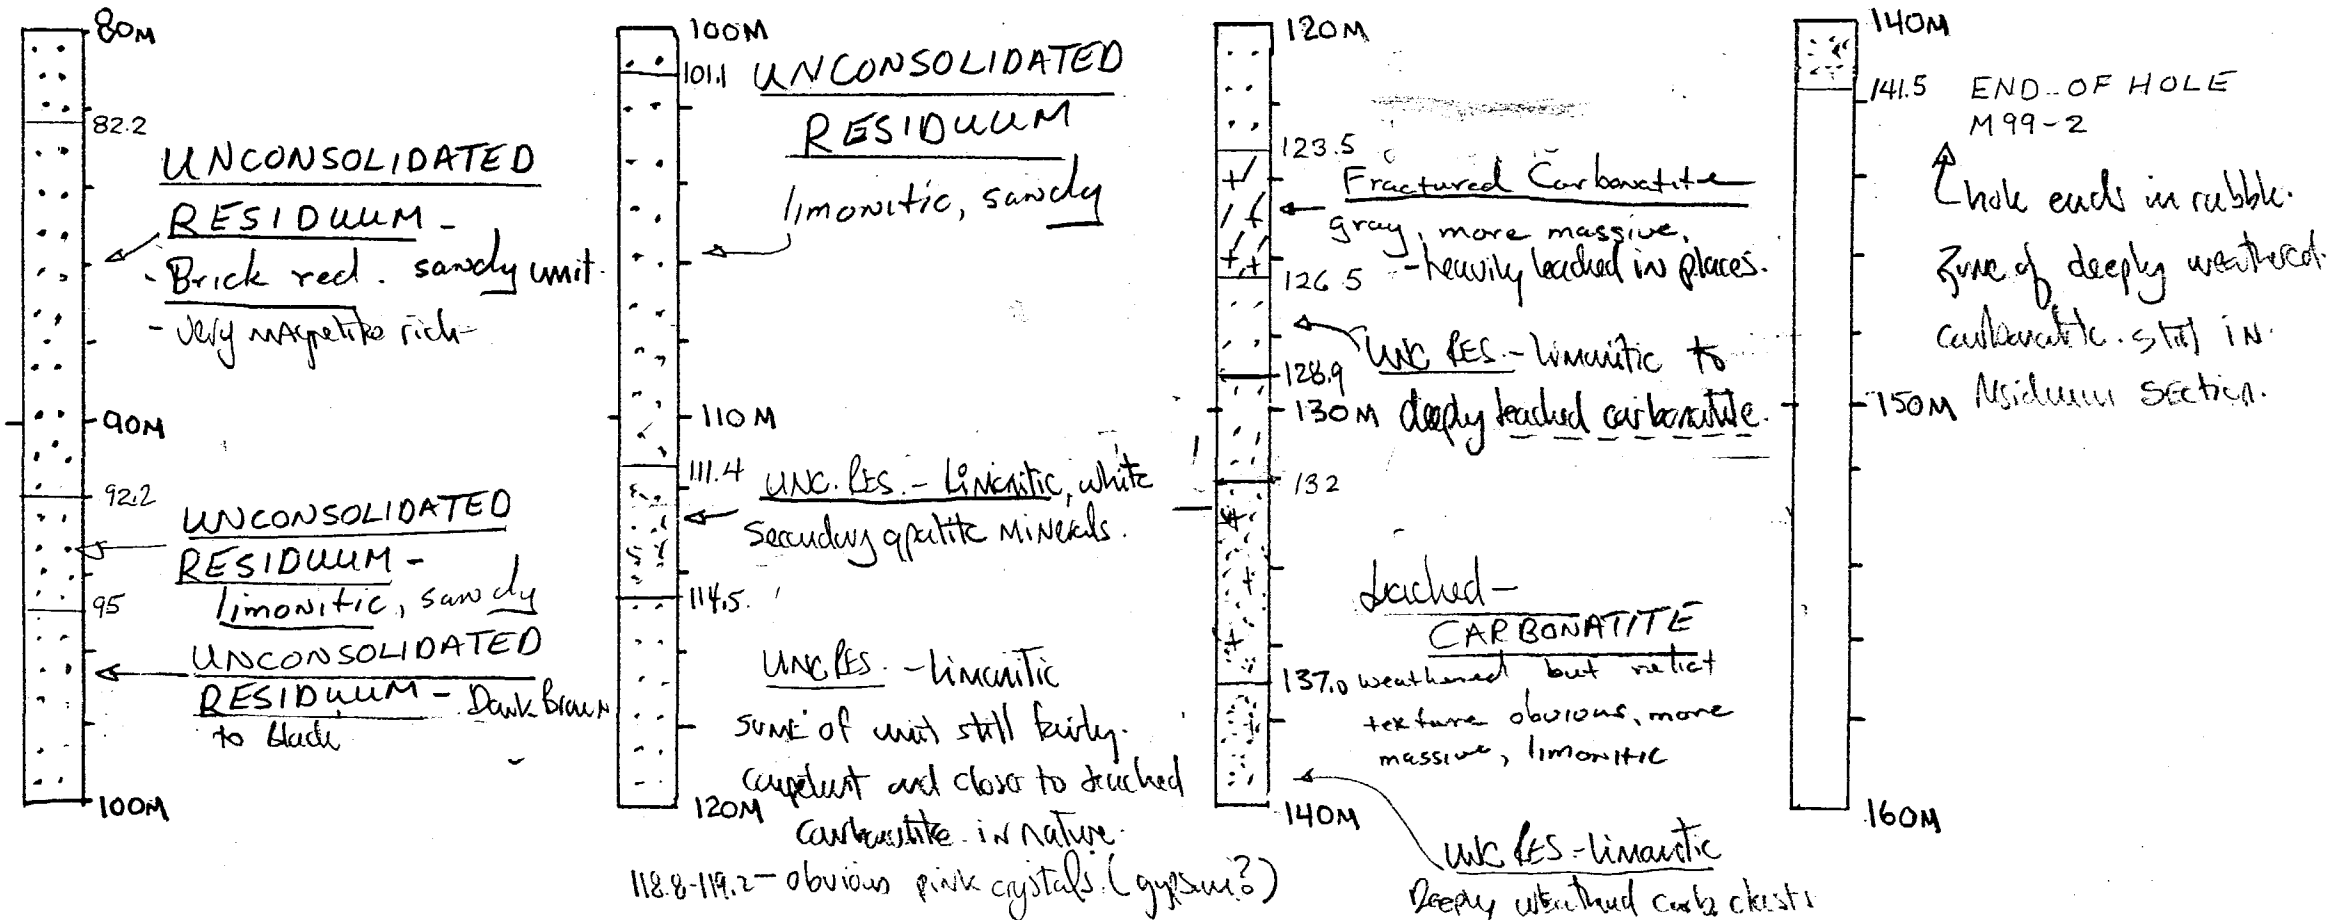 80M
82.2
UNCONSOLIDATED
RESIDUUM -
- Brick red. sandy unit.
- very magnetite rich
90M
92.2
UNCONSOLIDATED
RESIDUUM -
limonitic, sandy
95
UNCONSOLIDATED
RESIDUUM - Dark Brown
to black
100M
100M
101.1
UNCONSOLIDATED
RESIDUUM
limonitic, sandy
110M
111.4
UNC. RES. - Limonitic, white
secondary apatite minerals.
114.5
UNC RES. - limonitic
some of unit still fairly
competent and close to leached
carbonatite in nature.
118.8-119.2 - obvious pink crystals. (gypsum?)
120M
120M
123.5
Fractured Carbonatite
gray, more massive,
- heavily leached in places.
126.5
UNC RES. - limonitic to
deeply leached carbonatite.
128.9
130M
132
Leached -
CARBONATITE
weathered but relict
texture obvious, more
massive, limonitic
137.0
140M
UNC RES - limonitic
Deeply weathered carb clasts
140M
141.5
END-OF HOLE
M99-2
hole ends in rubble.
Zone of deeply weathered
carbonatite. still in
residuum section.
150M
160M